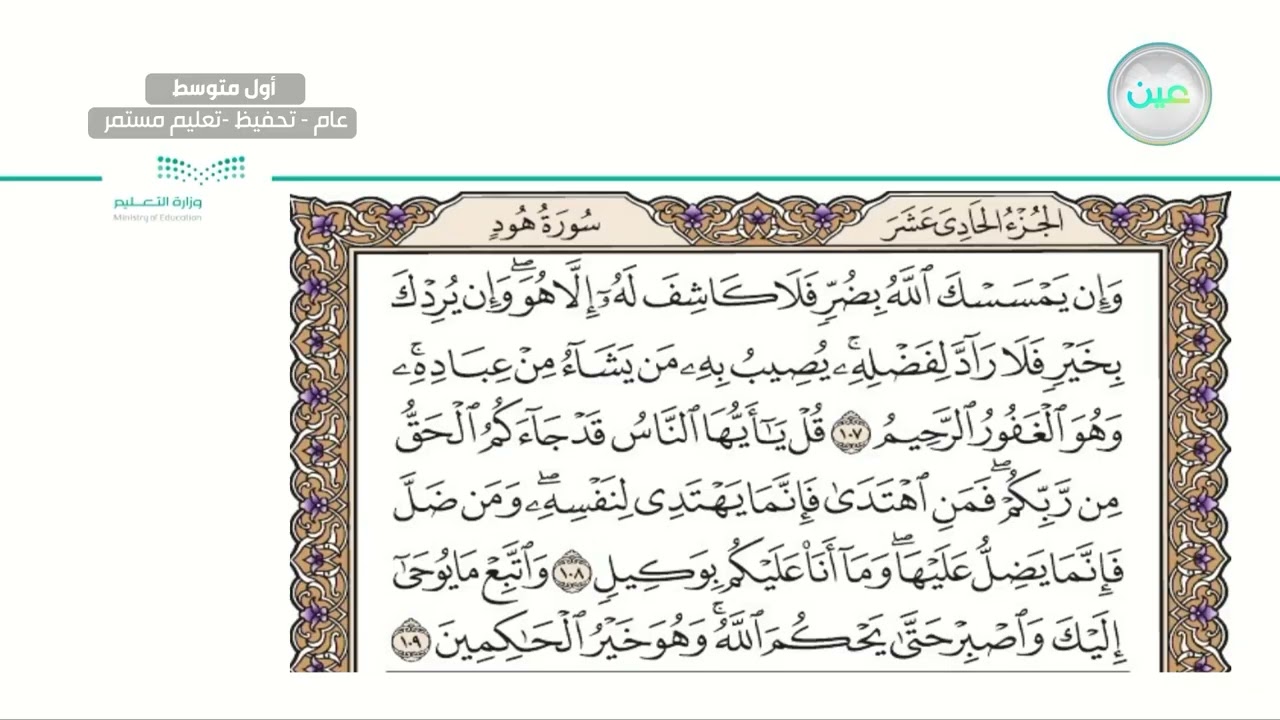 أول متوسط
عام - تحفيظ -تعليم مستمر
عين
وزارة التعـــليم
Ministry of Education
الجُزْءُ الحَادِى عَشَرَ
سُورَةُ هُودٍ
وَإِن يَمْسَسْكَ ٱللَّهُ بِضُرٍّ فَلَا كَاشِفَ لَهُۥٓ إِلَّا هُوَۖ وَإِن يُرِدْكَ
بِخَيْرٍ فَلَا رَآدَّ لِفَضْلِهِۦۚ يُصِيبُ بِهِۦ مَن يَشَآءُ مِنْ عِبَادِهِۦۚ
وَهُوَ ٱلْغَفُورُ ٱلرَّحِيمُ ١٠٧ قُلْ يَـٰٓأَيُّهَا ٱلنَّاسُ قَدْ جَآءَكُمُ ٱلْحَقُّ
مِن رَّبِّكُمْۖ فَمَنِ ٱهْتَدَىٰ فَإِنَّمَا يَهْتَدِى لِنَفْسِهِۦۖ وَمَن ضَلَّ
فَإِنَّمَا يَضِلُّ عَلَيْهَاۖ وَمَآ أَنَا۠ عَلَيْكُم بِوَكِيلٍ ١٠٨ وَٱتَّبِعْ مَا يُوحَىٰٓ
إِلَيْكَ وَٱصْبِرْ حَتَّىٰ يَحْكُمَ ٱللَّهُۚ وَهُوَ خَيْرُ ٱلْحَـٰكِمِينَ ١٠٩